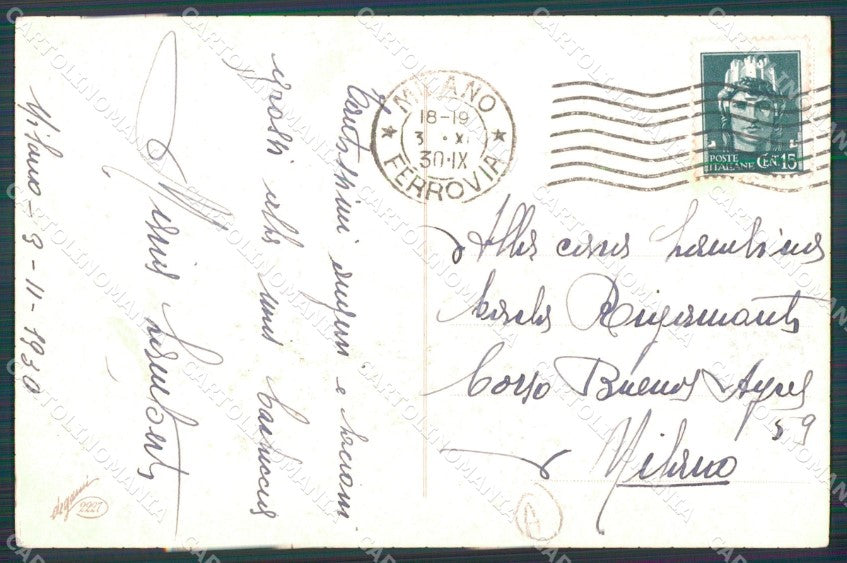 Milano - 3 - 11 - 1930
Tantissimi auguri e bacioni
grossi alla mia
MILANO
18-19
3 · XI
30·IX
FERROVIA
POSTE
ITALIANE
CEN. 15
Alla cara bambina
Rigamonti
Corso Buenos Ayres
59
Milano
degami
1066
A
CARTOLINOMANIA